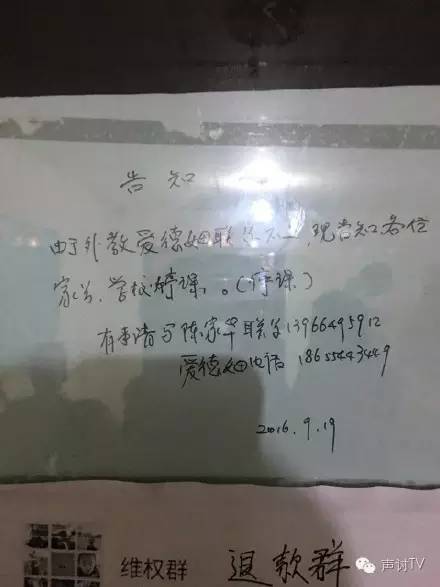 告知
由于外教爱德姆联系不上,现告知各位
家长,学校停课。(停课)
有事请与陈家华联系13966495912
爱德姆电话 18655443449
2016.9.19
维权群 退款群
声讨TV